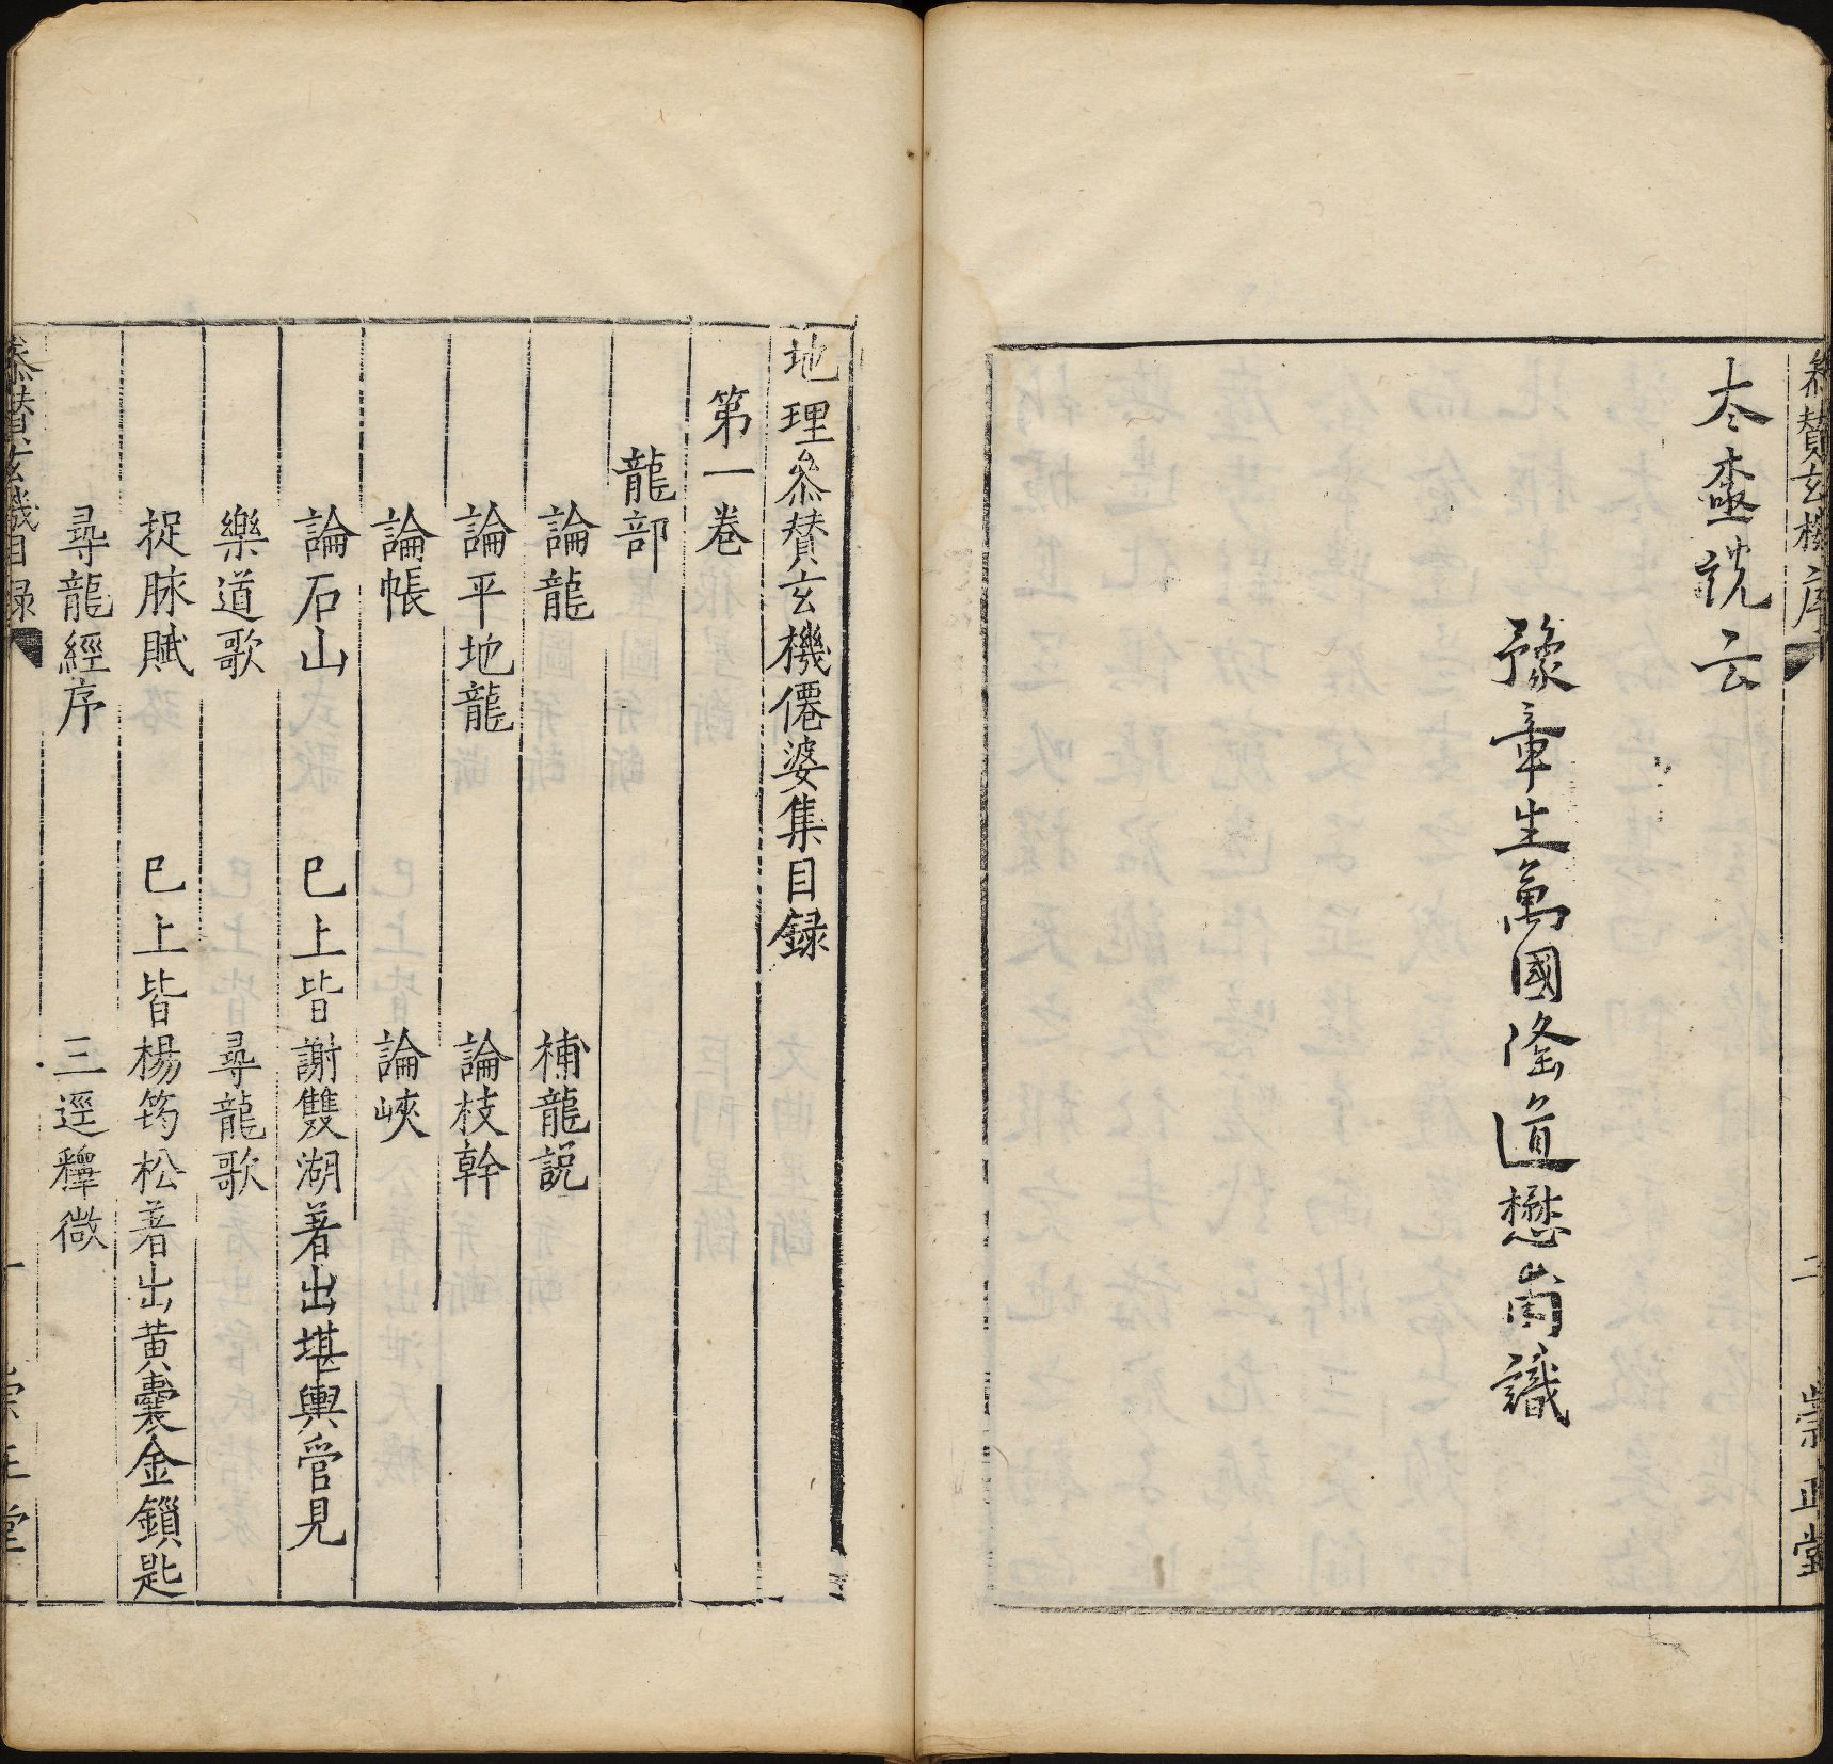 叅賛玄機序
二
崇正堂
夲盡說云
豫章生萬國隆道懋甫識
地理叅賛玄機僊婆集目録
第一卷
龍部
論龍 補龍説
論平地龍 論枝幹
論帳 論峽
論石山 已上皆謝雙湖著出堪輿管見
樂道歌 尋龍歌
捉脉賦 已上皆楊筠松著出黄囊金鎖匙
尋龍經序 三逕釋微
叅賛玄機目録
一
崇正堂